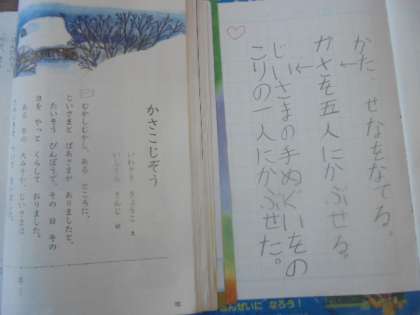 かさこじぞう
いわさき きょうこ 文
むかしむかし、ある ところに、
じいさまと ばあさまが ありましたと。
たいそう びんぼうで、その 日 その
日を やっと くらして おりました。
ある 年の 大みそか、じいさまは
かた、せなをなでる。
←
かさを五人にかぶせる。
←
じいさまの手ぬぐいをの
こりの一人にかぶせた。
になろう!